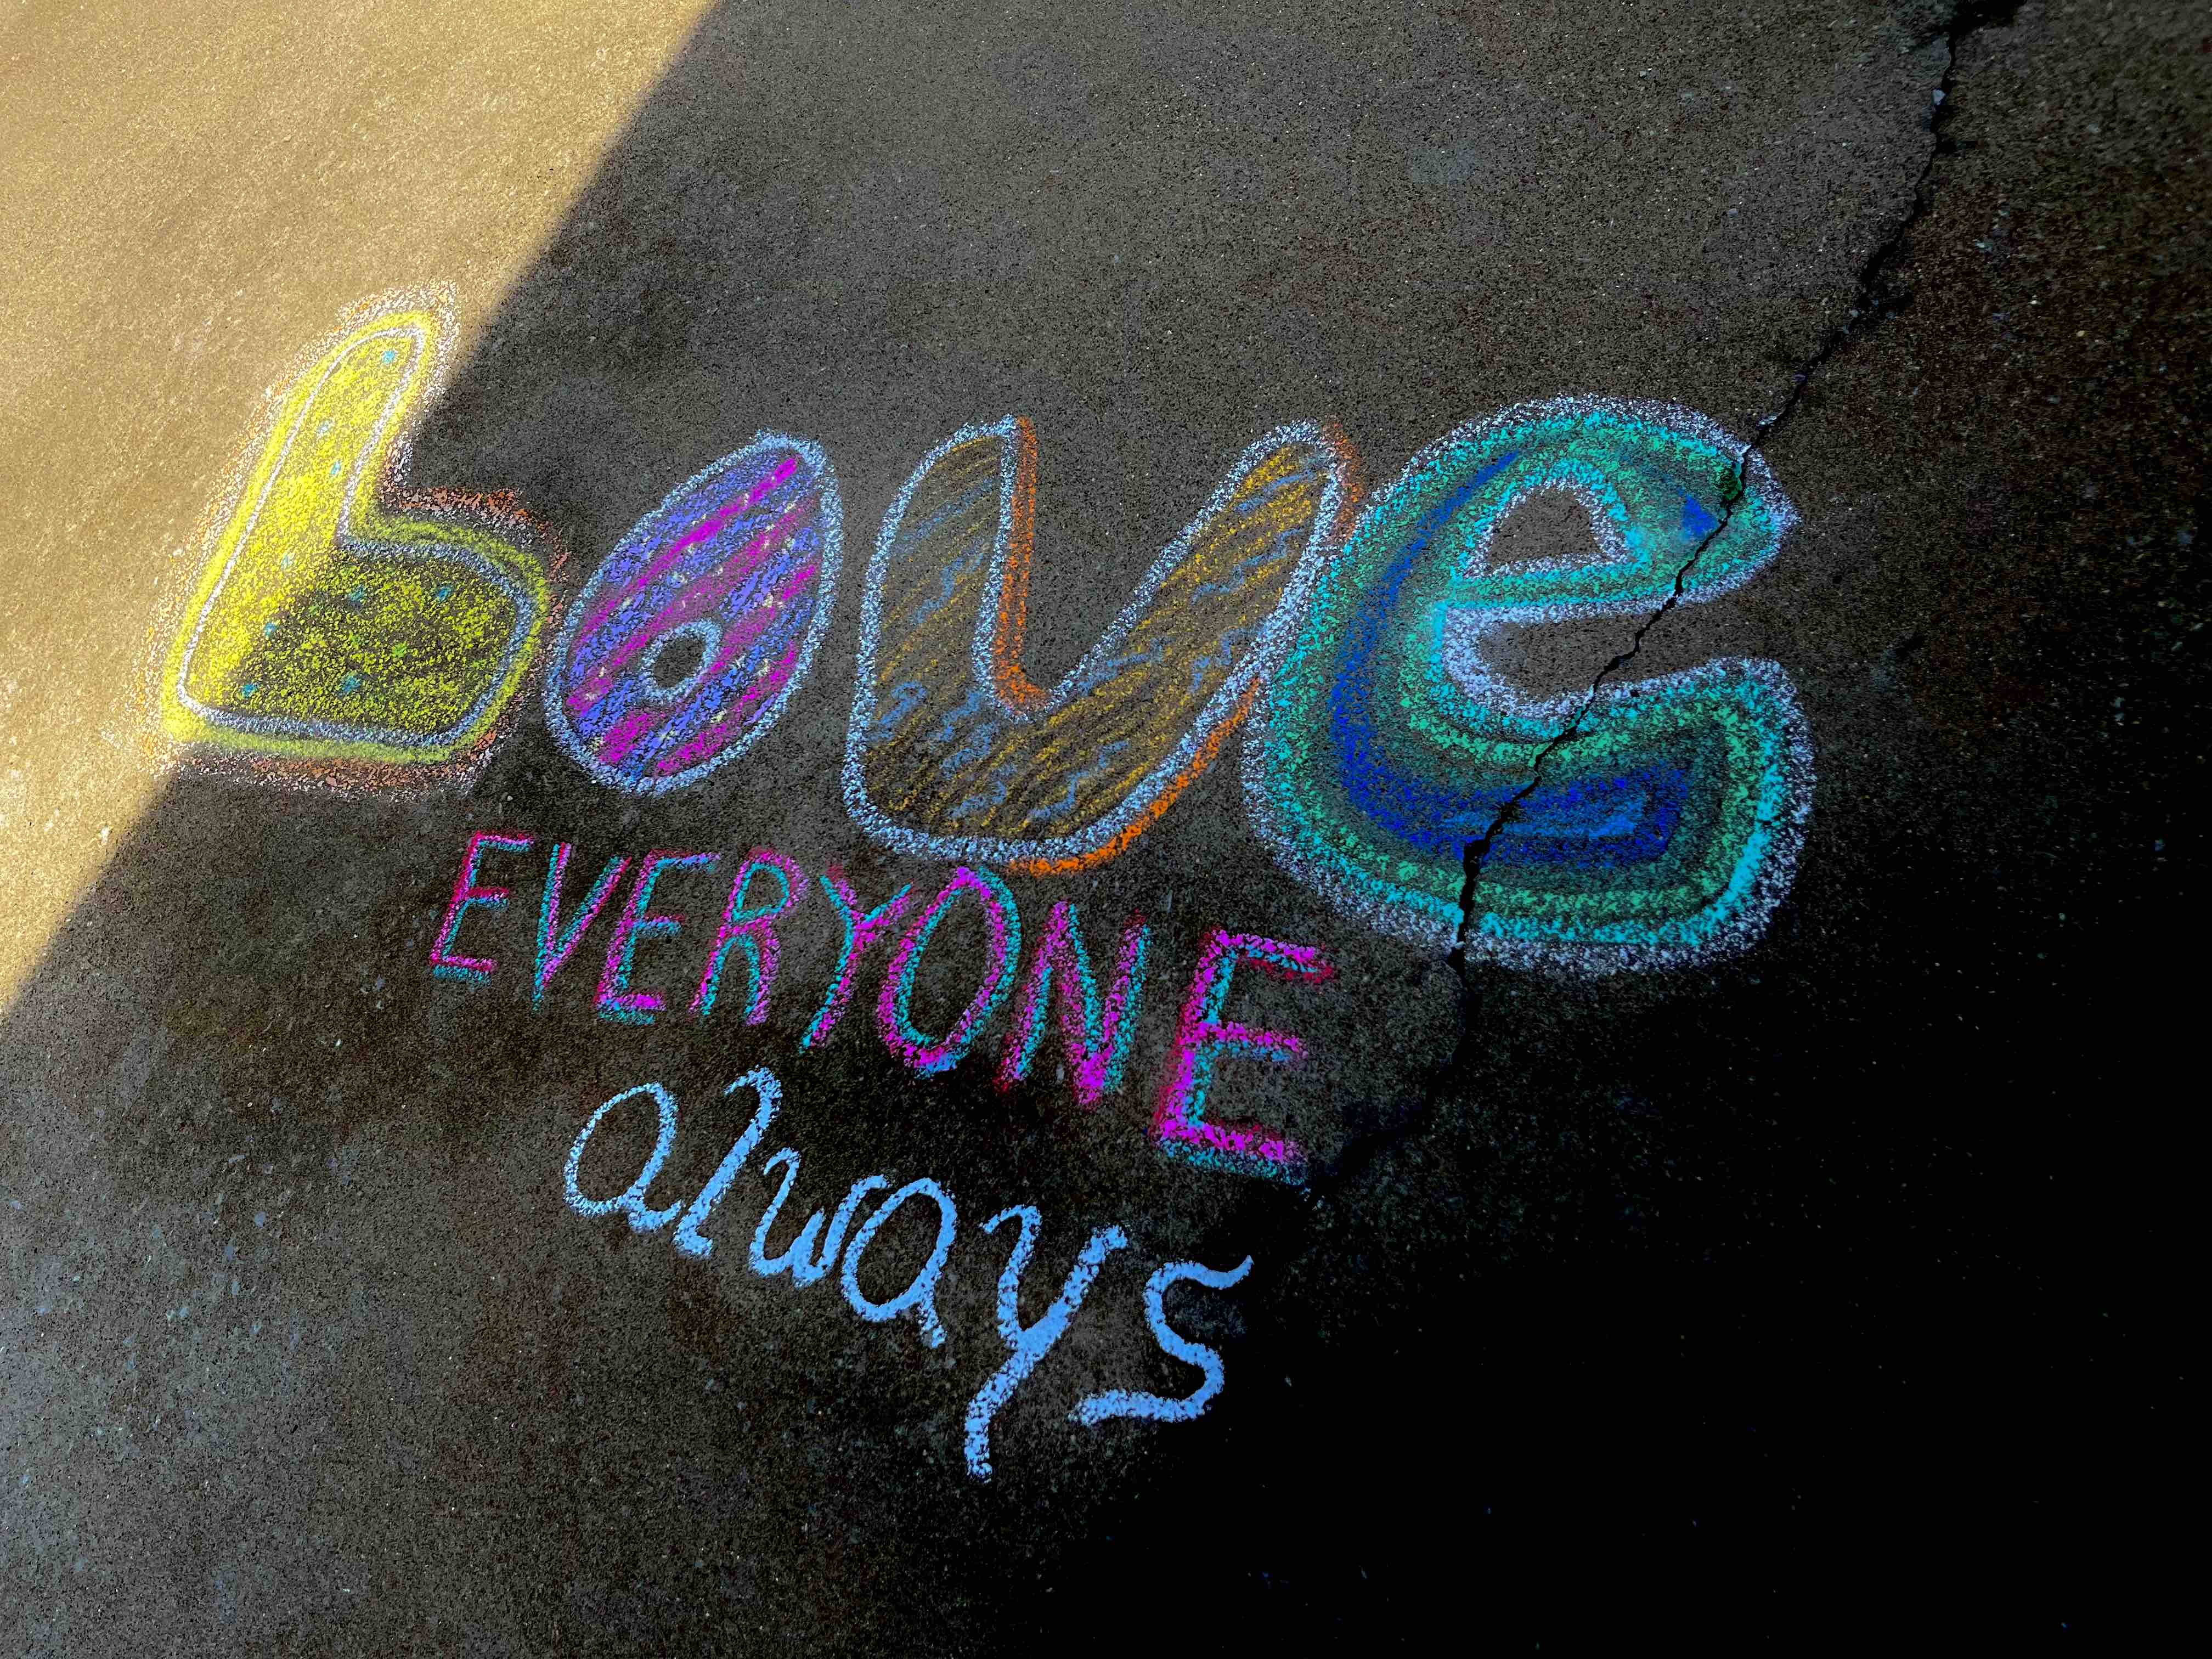 Love
EVERYONE
always